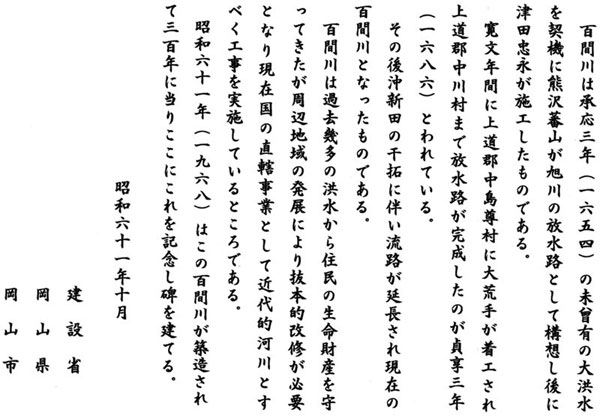 百間川は承応三年（一六五四）の未曾有の大洪水
を契機に熊沢蕃山が旭川の放水路として構想し後に
津田忠永が施工したものである。
寛文年間に上道郡中島尊村に大荒手が着工され
上道郡中川村まで放水路が完成したのが貞享三年
（一六八六）とわれている。
その後沖新田の干拓に伴い流路が延長され現在の
百間川となったものである。
百間川は過去幾多の洪水から住民の生命財産を守
ってきたが周辺地域の発展により抜本的改修が必要
となり現在国の直轄事業として近代的河川とす
べく工事を実施しているところである。
昭和六十一年（一九六八）はこの百間川が築造され
て三百年に当りここにこれを記念し碑を建てる。
昭和六十一年十月
建設省
岡山県
岡山市